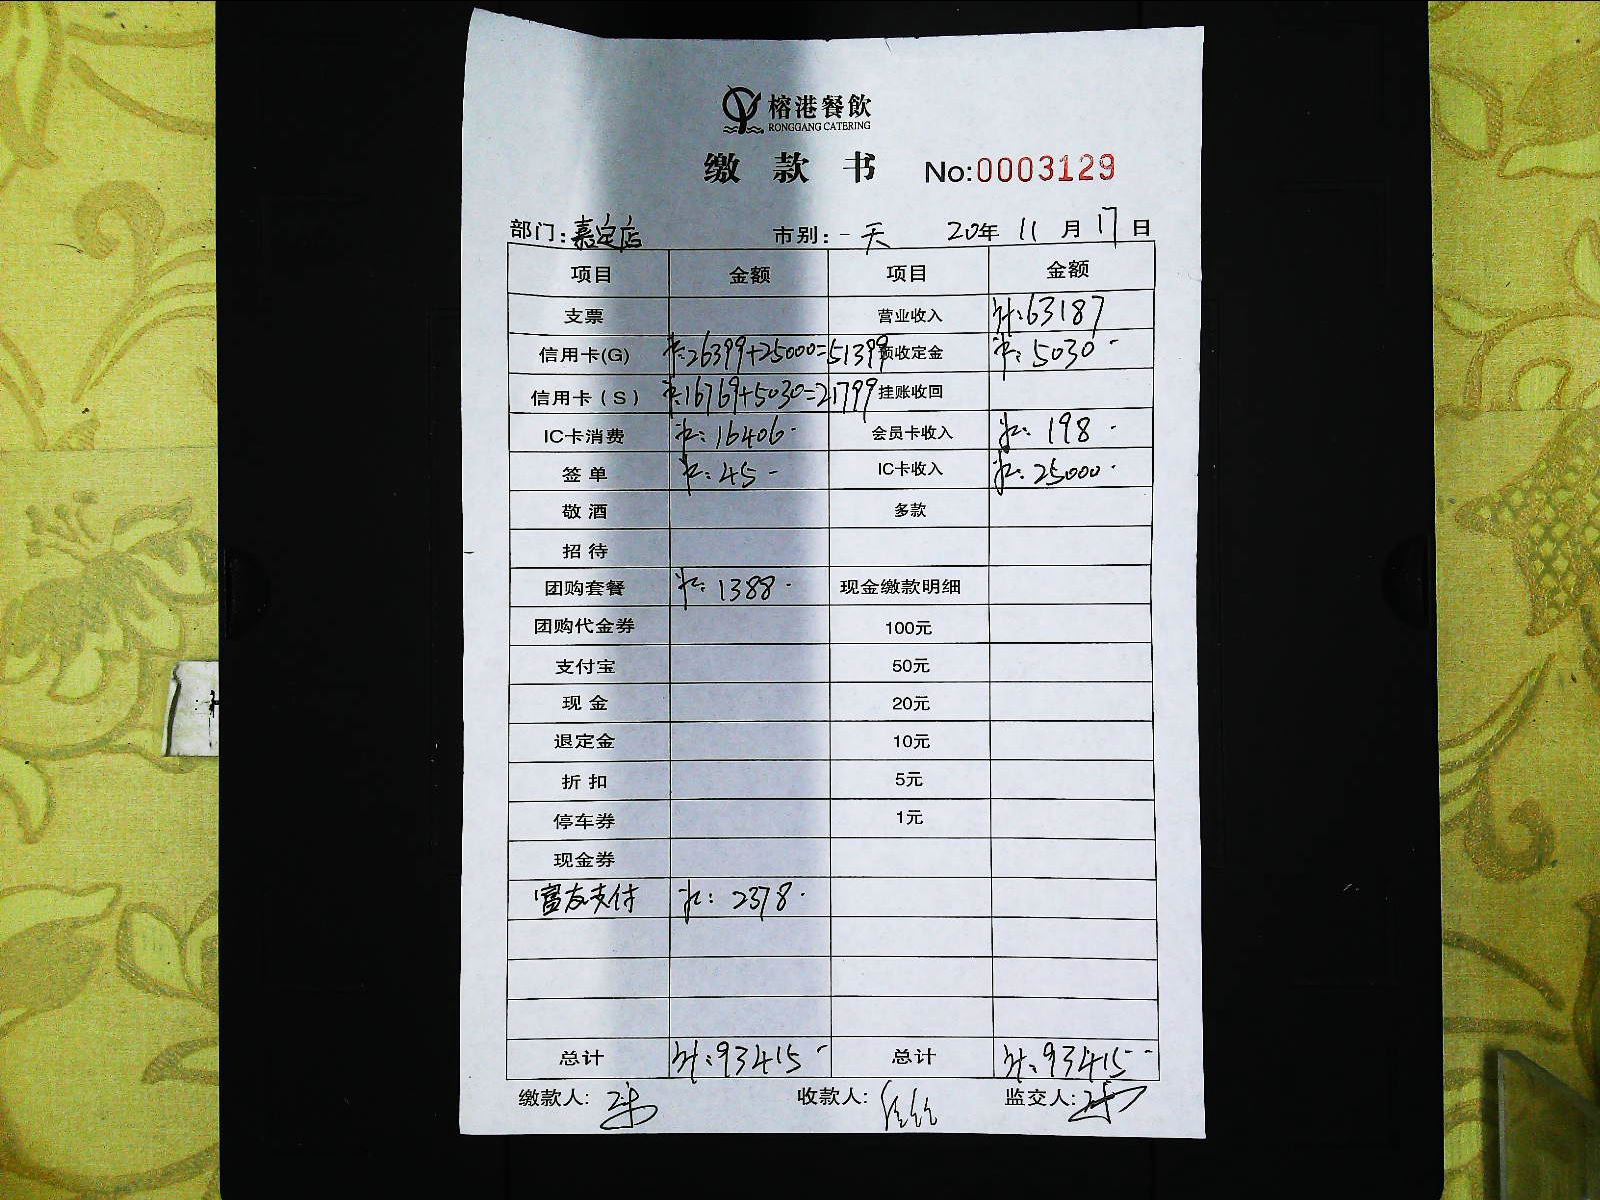 榕港餐飲
RONGGANG CATERING
缴款书 No:0003129
部门:嘉定店 市别:一天 20年 11月17日
项目 金额 项目 金额
支票 营业收入 计:63187
信用卡(G) 卡:26399+25000=51399 预收定金 卡:5030-
信用卡(S) 卡:16769+5030=21799 挂账收回
IC卡消费 计:16406- 会员卡收入 计:198-
签单 卡:45- IC卡收入 计:25000-
敬酒 多款
招待
团购套餐 计:1388- 现金缴款明细
团购代金券 100元
支付宝 50元
现金 20元
退定金 10元
折扣 5元
停车券 1元
现金券
富友支付 计:2378-
总计 计:93415- 总计 计:93415--
缴款人: 收款人: 监交人: